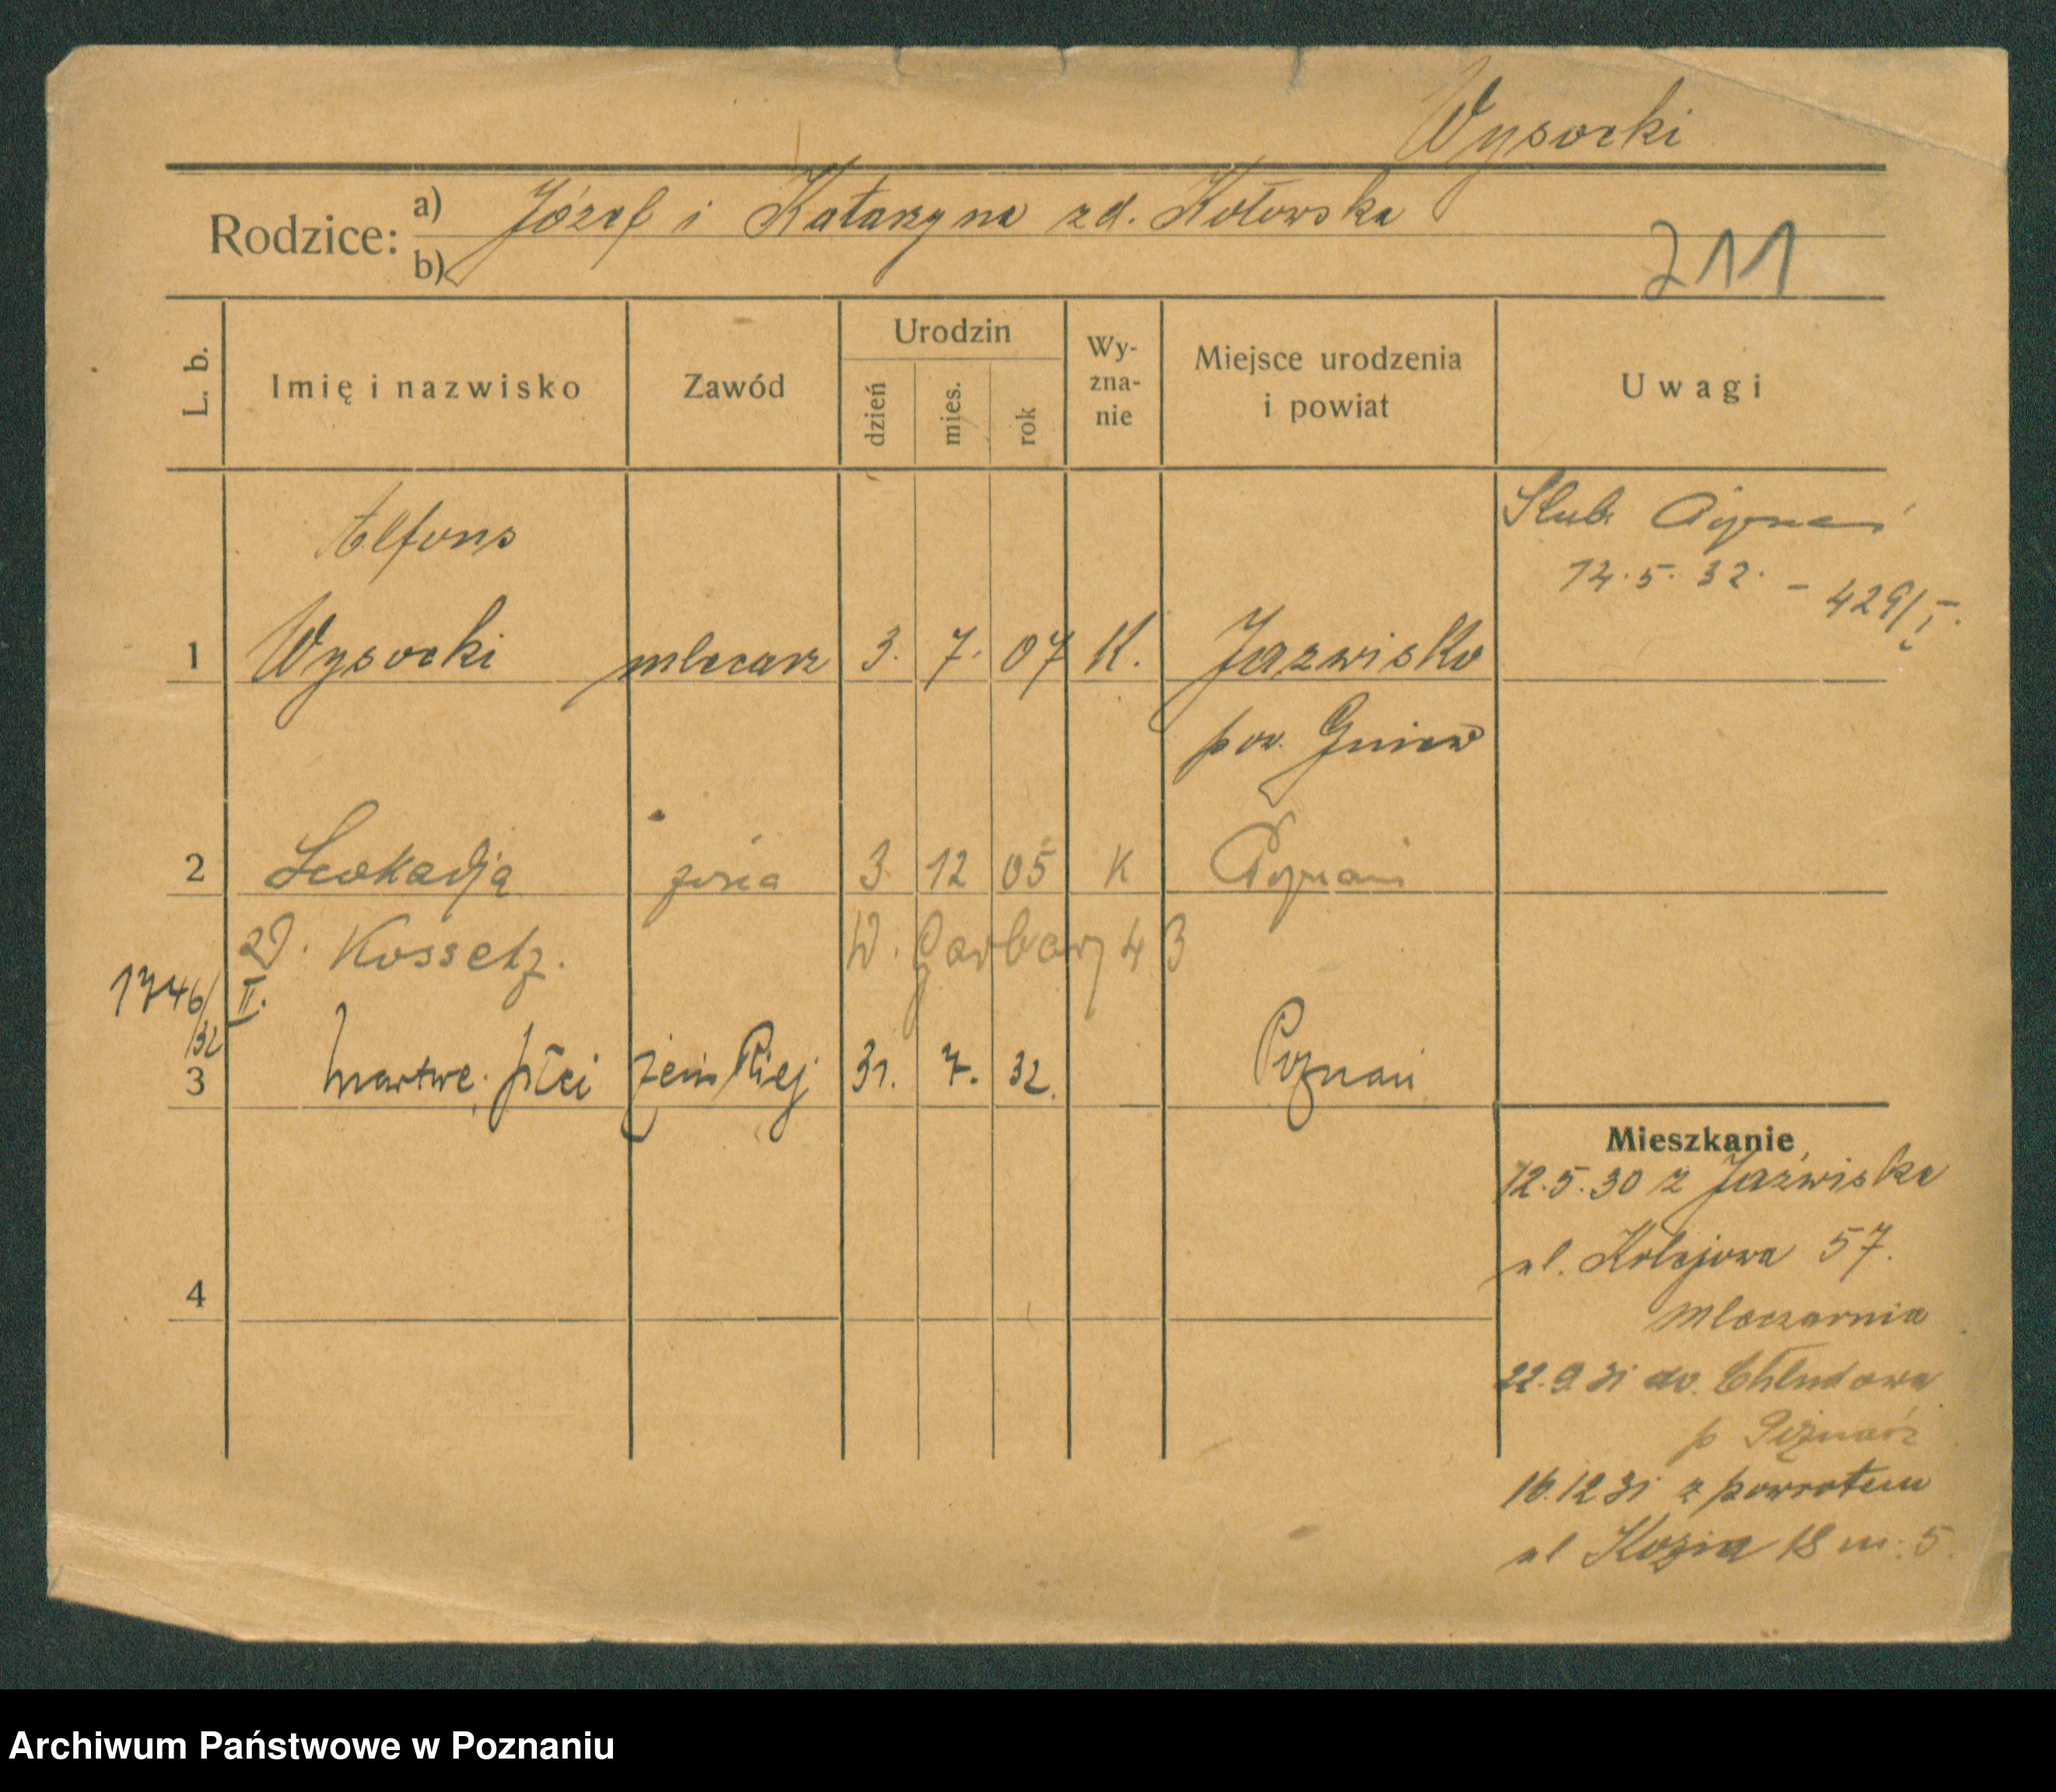 Wysocki
Rodzice: a) Józef i Katarzyna zd. Kotowska
b)
211
L. b. Imię i nazwisko Zawód Urodzin dzień mies. rok Wy-zna-nie Miejsce urodzenia i powiat Uwagi
Ślub Poznań
14.5.32. - 429/I.
Alfons
1 Wysocki mleczarz 3. 7. 07 K. Jaźwisko
pow. Gniew
2 Leokadja żona 3 12 05 K Poznań
zd. Kossek W. Garbary 43
1746/II.
/32
3 martwe płci żeńskiej 31. 7. 32. Poznań
Mieszkanie
12.5.30 z Jaźwiska
ul. Kolejowa 57.
Mleczarnia
4
22.9 31 do Chludowa
p Poznań
16.12 31 z powrotem
ul Kozia 18 m. 5.
Archiwum Państwowe w Poznaniu